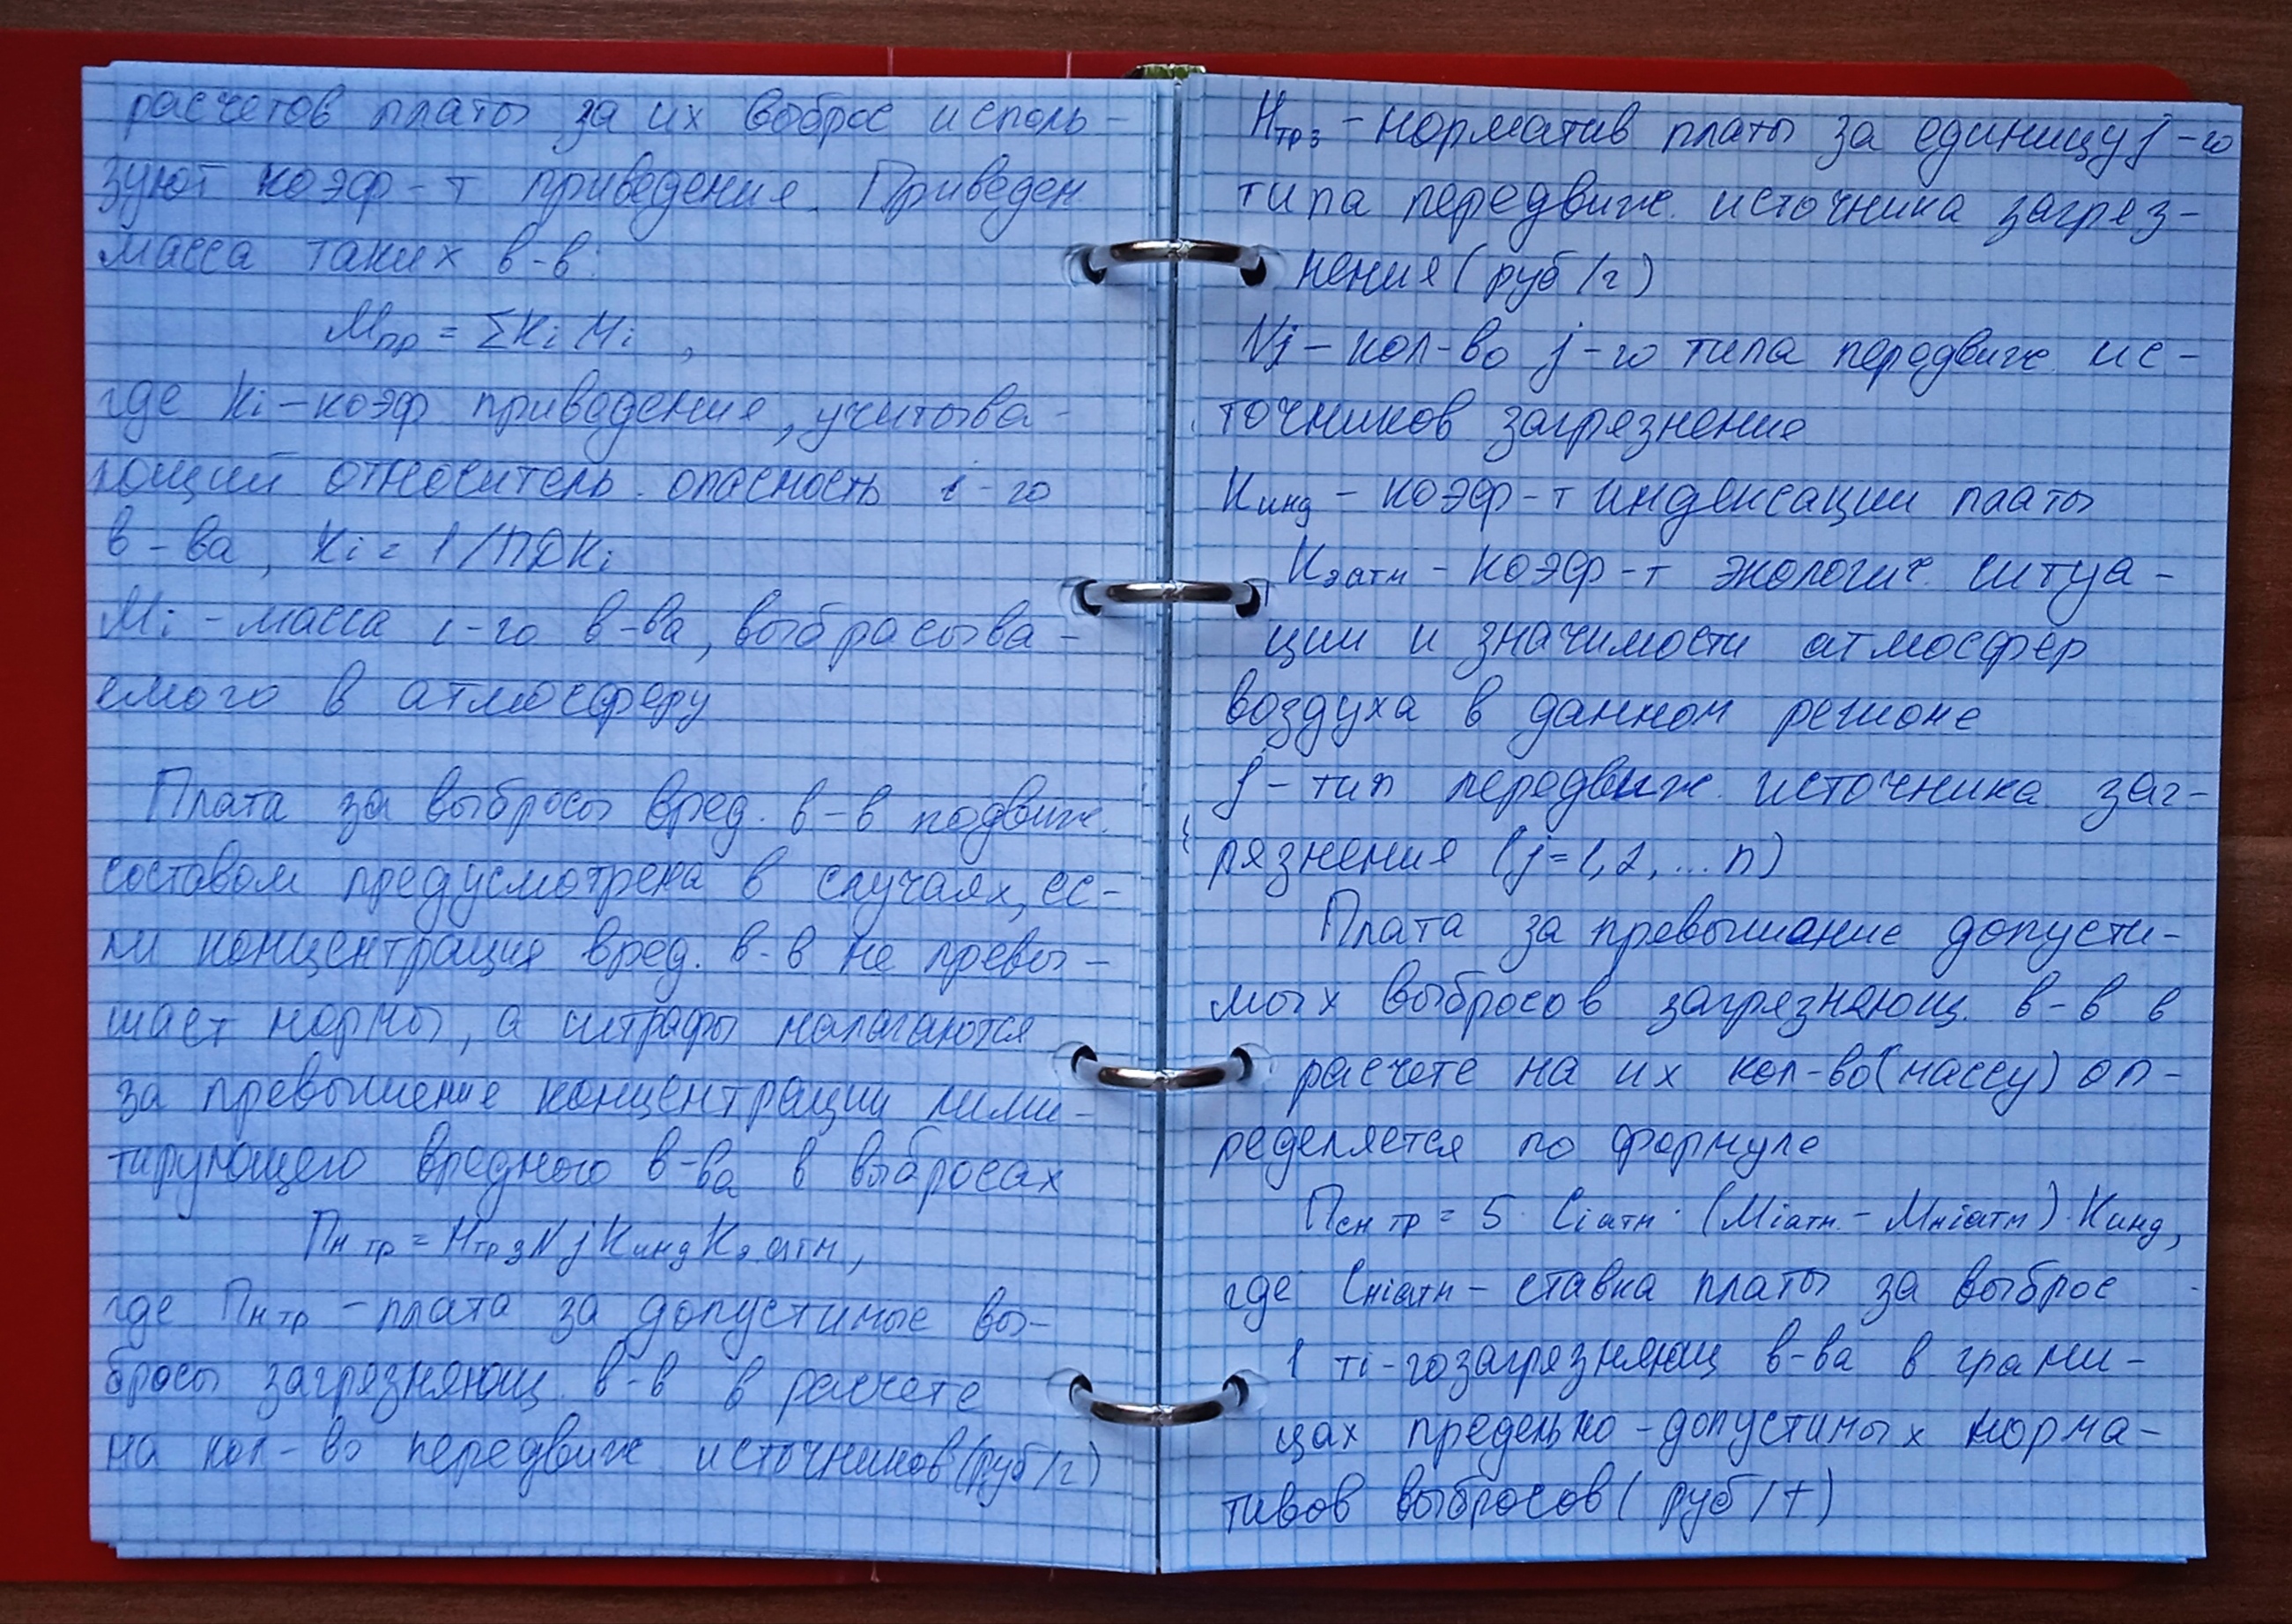 расчетов платы за их выброс исполь-
зуют коэф-т приведения. Приведен.
масса таких в-в:
Mпр = ΣKi Mi ,
где Ki – коэф приведения, учитыва-
ющий относитель. опасность i-го
в-ва, Ki = 1/ПДКi
Mi – масса i-го в-ва, выбрасыва-
емого в атмосферу
Плата за выбросы вред. в-в подвиж.
составом предусмотрена в случаях, ес-
ли концентрация вред. в-в не превы-
шает нормы, а штрафы налагаются
за превышение концентрации лими-
тирующего вредного в-ва в выбросах
Пн тр = Hтр з Nj Kинд Kэ атм,
где Пн тр – плата за допустимые вы-
бросы загрязняющ. в-в в расчете
на кол-во передвиж источников (руб/г)
Hтр з – норматив платы за единицу j-го
типа передвиж. источника загряз-
нения (руб/г)
Nj – кол-во j-го типа передвиж. ис-
точников загрязнение
Kинд – коэф-т индексации платы
Kэатм – коэф-т экологич. ситуа-
ции и значимости атмосфер
воздуха в данном регионе
j – тип передвиж. источника заг-
рязнения (j=1,2,...n)
Плата за превышание допусти-
мых выбросов загрязняющ. в-в в
расчете на их кол-во (массу) оп-
ределяется по формуле
Псн тр = 5 · Ciатм · (Miатм. – Mнiатм) · Kинд,
где Cнiатм – ставка платы за выброс
1 тi-го загрязняющ в-ва в грани-
цах предельно-допустимых норма-
тивов выбросов (руб/т)